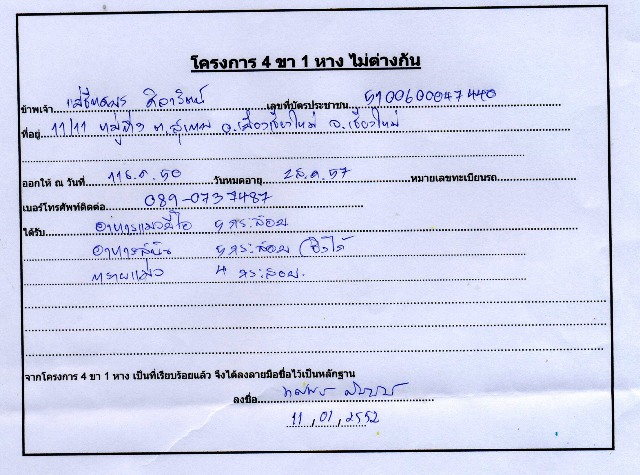 โครงการ 4 ขา 1 หาง ไม่ต่างกัน
ข้าพเจ้า แม่ชี เลขที่บัตรประชาชน 5100600047440
ที่อยู่ 11/11 หมู่ที่ ต.สุเทพ อ.เมืองเชียงใหม่ จ.เชียงใหม่
ออกให้ ณ วันที่ 11 ธ.ค. 50 วันหมดอายุ 2 ส.ค. 57 หมายเลขทะเบียนรถ
เบอร์โทรศัพท์ติดต่อ 089-0737487
ได้รับ อาหารแมวมีโอ 5 กระสอบ
อาหารสุนัข 5 กระสอบ
ทรายแมว 4 กระสอบ.
จากโครงการ 4 ขา 1 หาง เป็นที่เรียบร้อยแล้ว จึงได้ลงลายมือชื่อไว้เป็นหลักฐาน
ลงชื่อ
11 / 01 / 2552